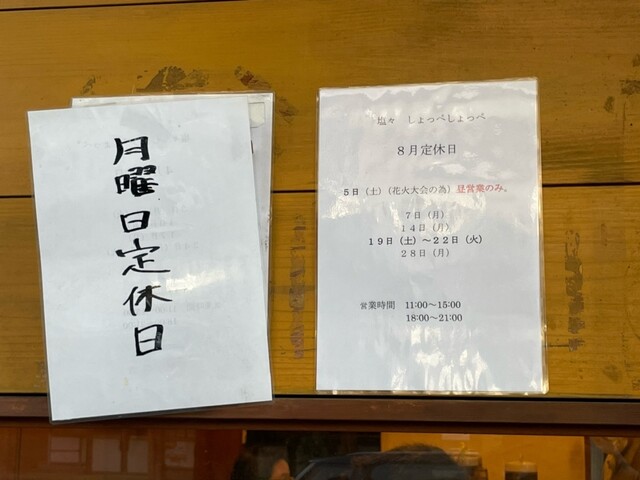 月曜日定休日
塩々 しょっぺしょっぺ
8月定休日
5日(土)(花火大会の為)昼営業のみ。
7日(月)
14日(月)
19日(土)～22日(火)
28日(月)
営業時間 11:00～15:00
18:00～21:00